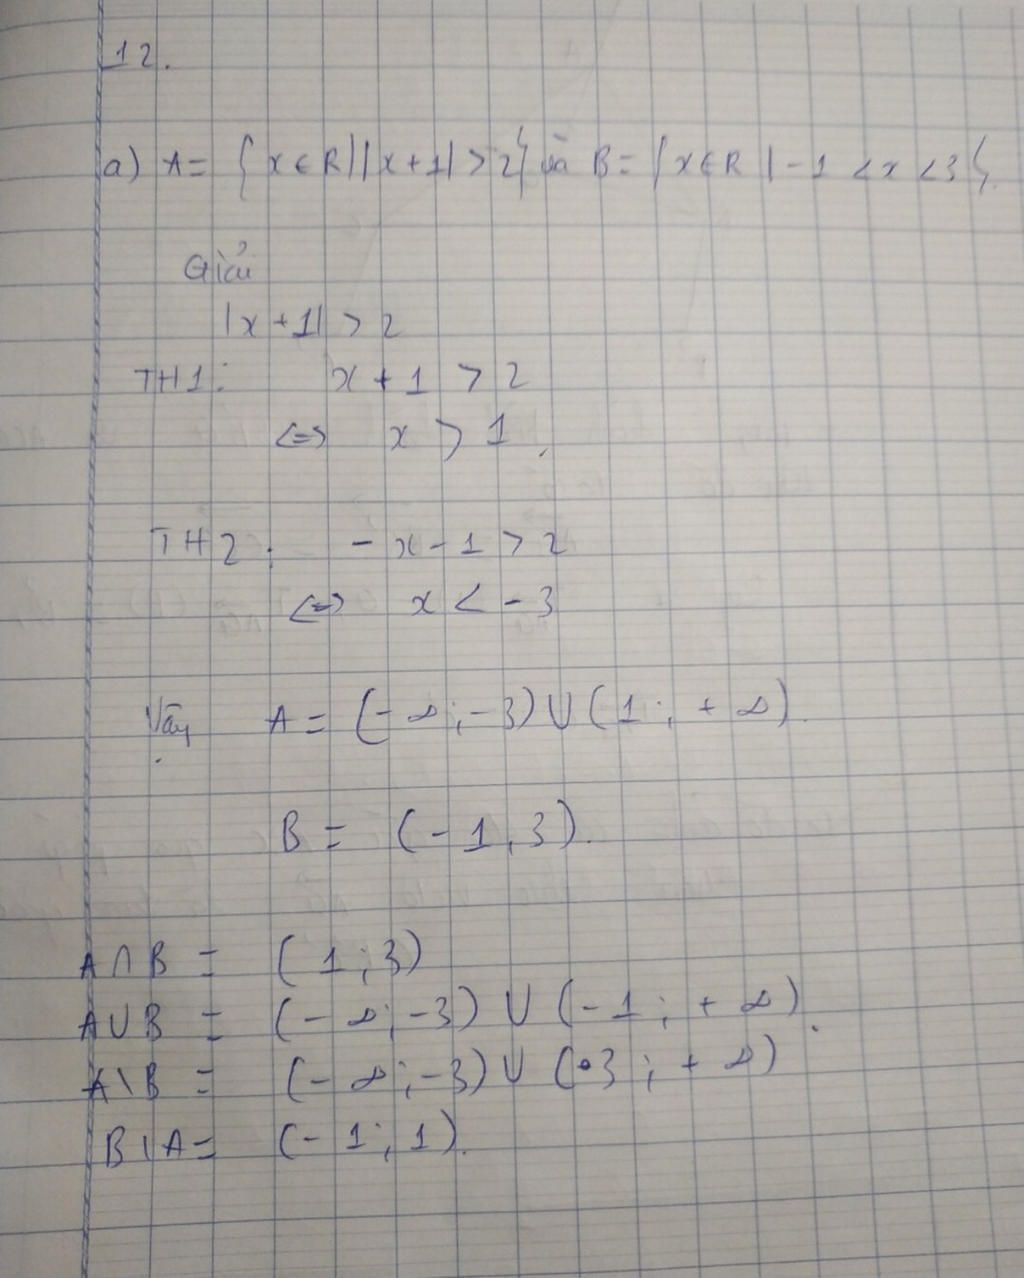 12.
a) A = {x ∈ R | |x + 1| > 2} và B = {x ∈ R | -1 < x < 3}.
Giải
|x + 1| > 2
TH1: x + 1 > 2
<=> x > 1.
TH2: - x - 1 > 2
<=> x < -3
Vậy A = (-∞; -3) ∪ (1; +∞).
B = (-1, 3).
A ∩ B = (1; 3)
A ∪ B = (-∞; -3) ∪ (-1; +∞).
A \ B = (-∞; -3) ∪ (3; +∞)
B \ A = (-1; 1).